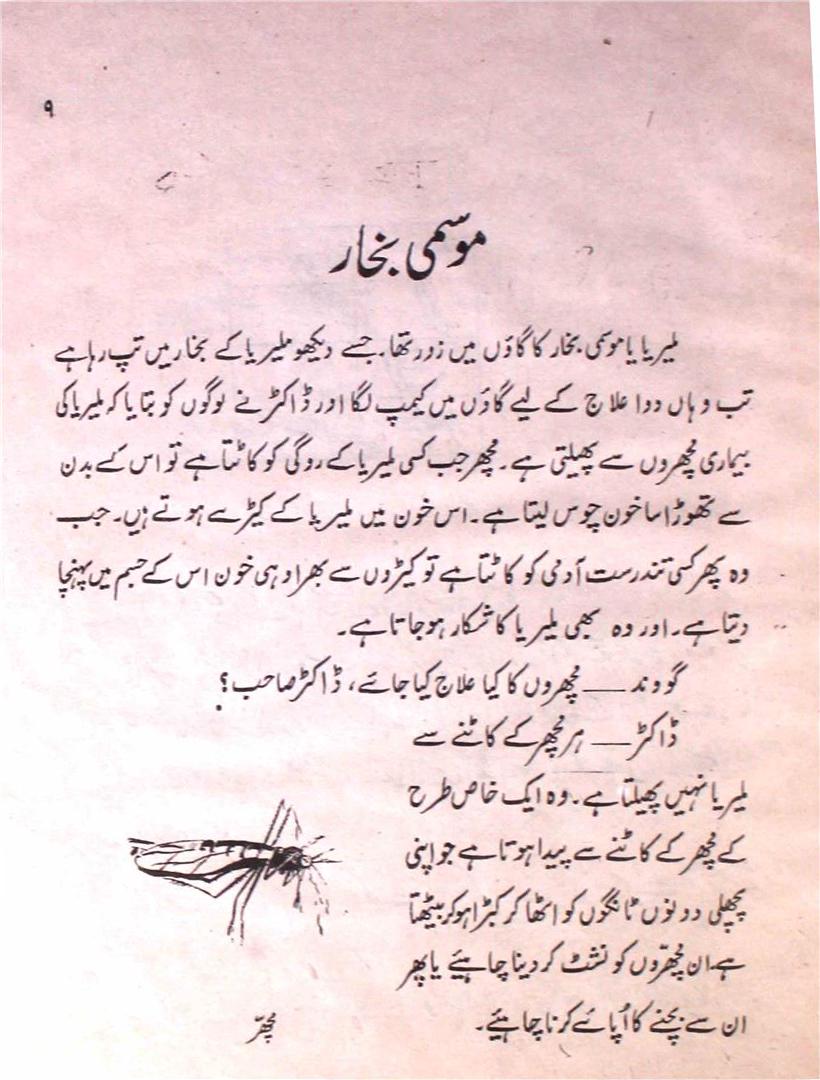 ۹
موسمی بخار
ملیریا یا موسمی بخار کا گاؤں میں زور تھا۔ جسے دیکھو ملیریا کے بخار میں تپ رہا ہے
تب وہاں دوا علاج کے لیے گاؤں میں کیمپ لگا اور ڈاکٹر نے لوگوں کو بتایا کہ ملیریا کی
بیماری مچھروں سے پھیلتی ہے۔ مچھر جب کسی ملیریا کے روگی کو کاٹتا ہے تو اس کے بدن
سے تھوڑا سا خون چوس لیتا ہے۔ اس خون میں ملیریا کے کیڑے ہوتے ہیں۔ جب
وہ پھر کسی تندرست آدمی کو کاٹتا ہے تو کیڑوں سے بھرا وہی خون اس کے جسم میں پہنچا
دیتا ہے۔ اور وہ بھی ملیریا کا شکار ہو جاتا ہے۔
گووند — مچھروں کا کیا علاج کیا جائے، ڈاکٹر صاحب؟
ڈاکٹر — ہر مچھر کے کاٹنے سے
ملیریا نہیں پھیلتا ہے۔ وہ ایک خاص طرح
کے مچھر کے کاٹنے سے پیدا ہوتا ہے جو اپنی
پچھلی دونوں ٹانگوں کو اٹھا کر کبڑا ہو کر بیٹھتا
ہے ان مچھّروں کو نشٹ کر دینا چاہئیے یا پھر
ان سے بچنے کا اُپائے کرنا چاہئیے۔
مچھّر